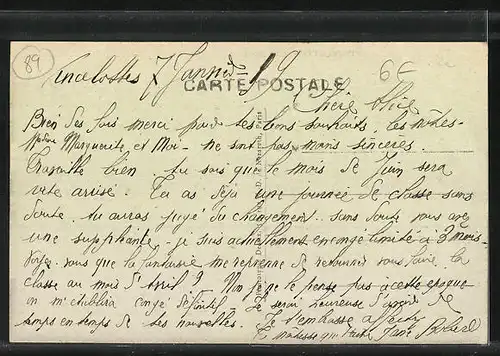 89
6€
7 Janvier 19
CARTE POSTALE
Chère Alice
Bien des fois merci pour tes bons souhaits, les nôtres-
Marguerite et Moi - ne sont pas moins sincères.
Travaille bien, tu sais que le mois de Juin sera
vite arrivé. Tu as déjà une journée de classe sans
doute, tu auras jugé du changement. sans doute vous avez
une suppléante, je suis actuellement en congé limité à 3 mois.
vous que la fantaisie me reprenne de retourner vous faire la
classe au mois d'Avril ? Non je ne le pense pas à cette époque
on m'établira congé définitif. Je serai heureuse d'avoir de
temps en temps de tes nouvelles. Je t'embrasse